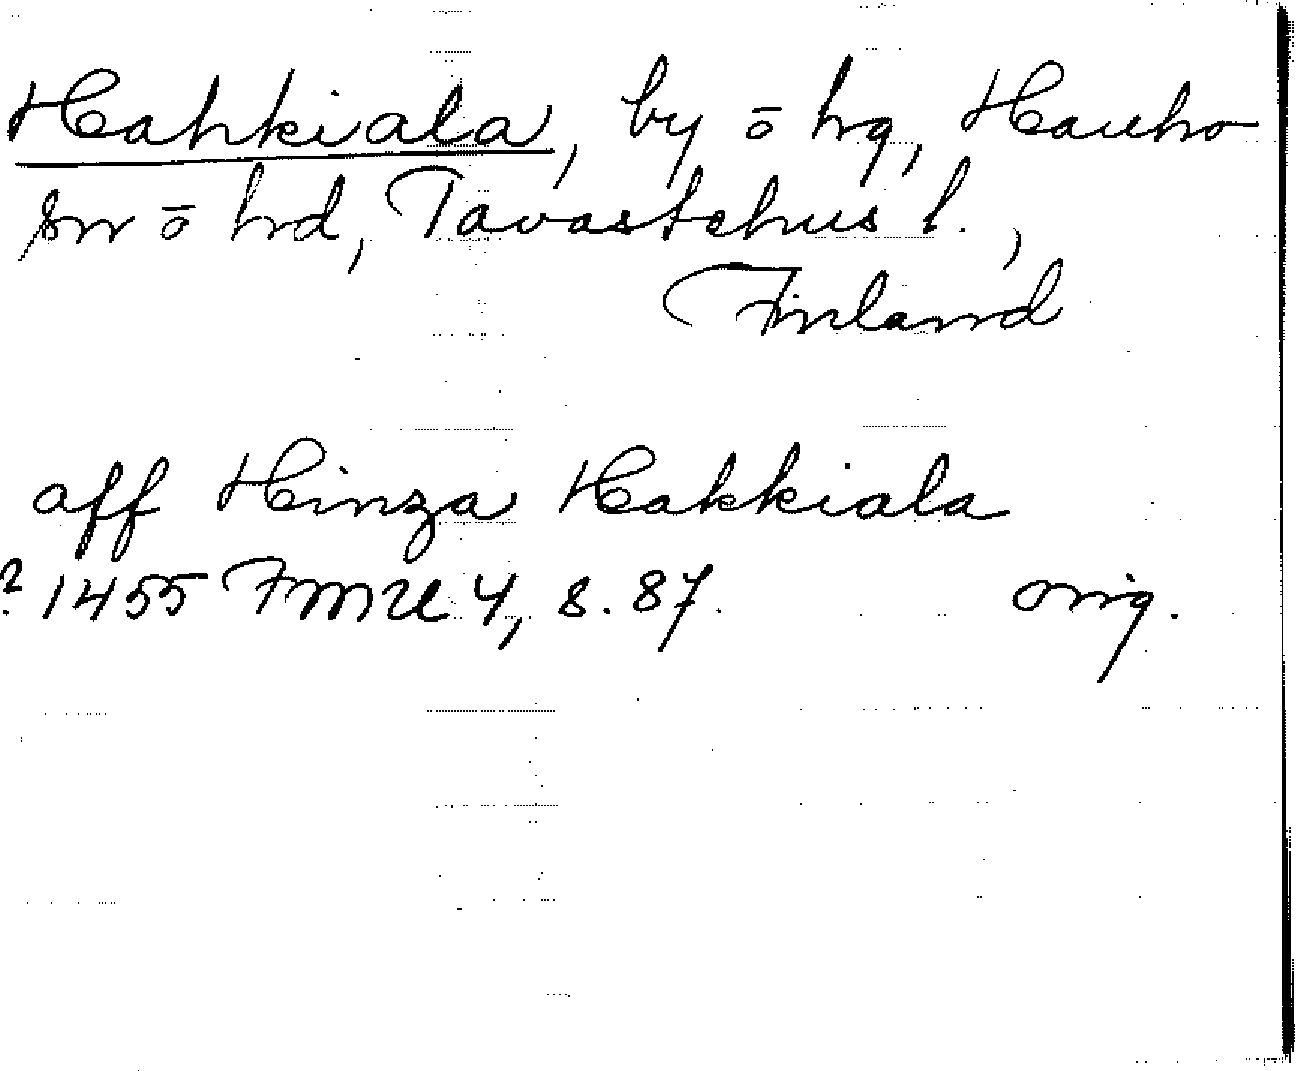 Hahkiala, by ō hg, Hauho
sn ō hd, Tavastehus l.,
Finland
aff Hinza Hakkiala
? 1455 FMU 4, s. 87.
orig.